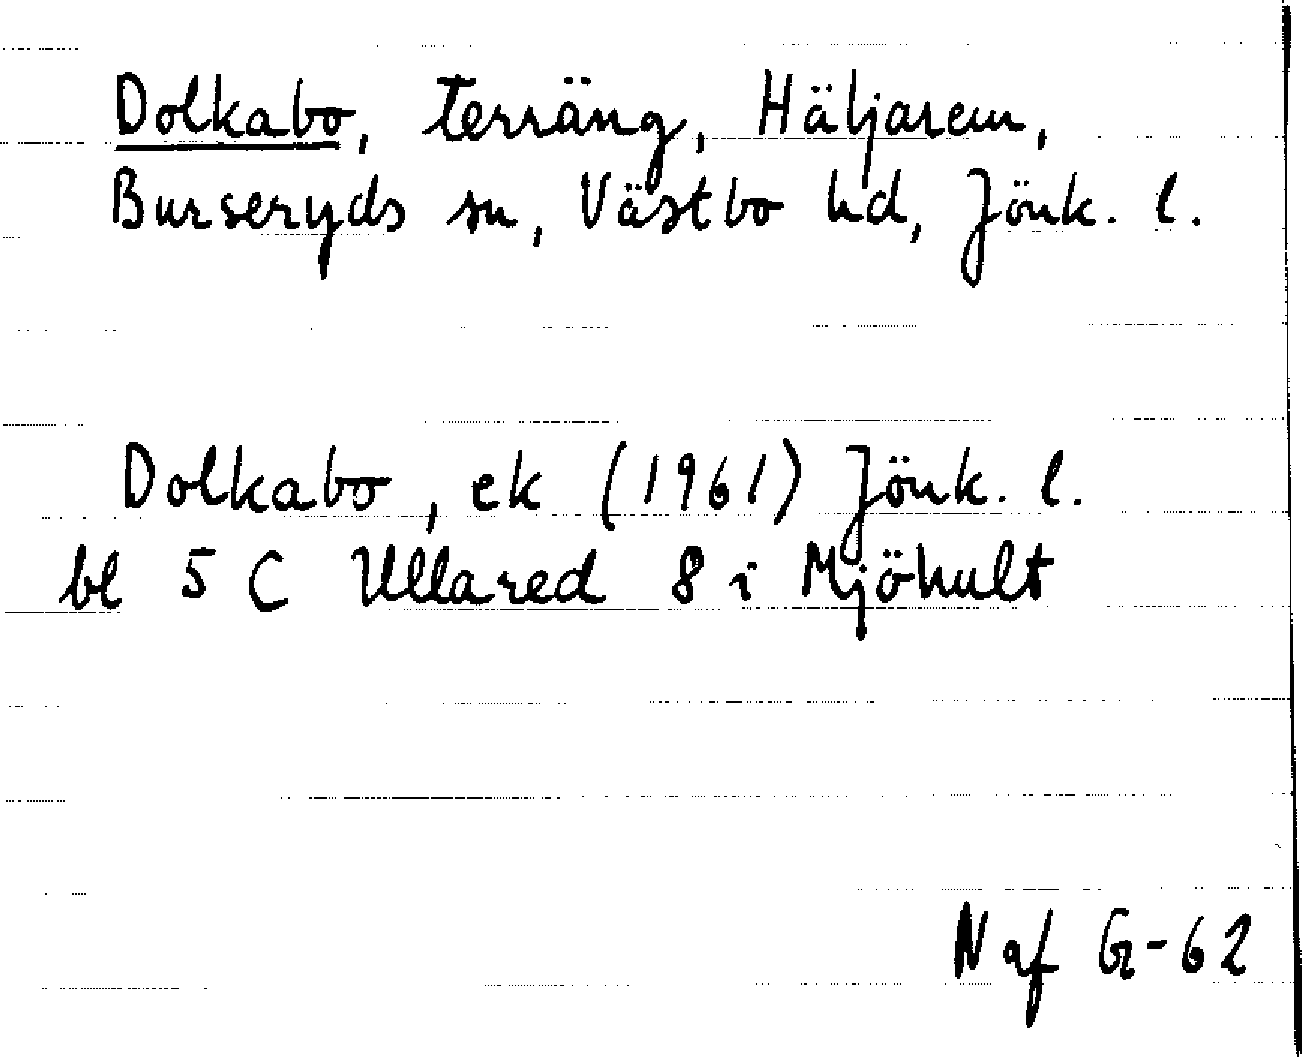 Dolkabo, terräng, Häljarem,
Burseryds sn, Västbo hd, Jönk. l.
Dolkabo, ek (1961) Jönk. l.
bl 5 C Ullared 8 i Mjöhult
N af G-62